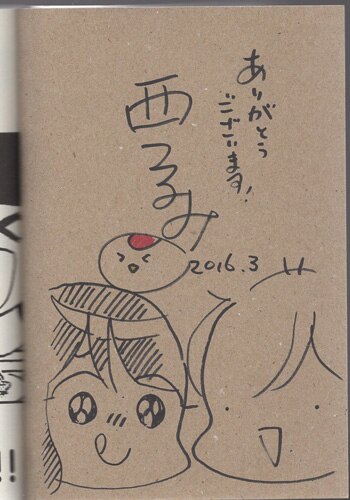 ありがとう
ございます!
西るみ
2016.3
!!